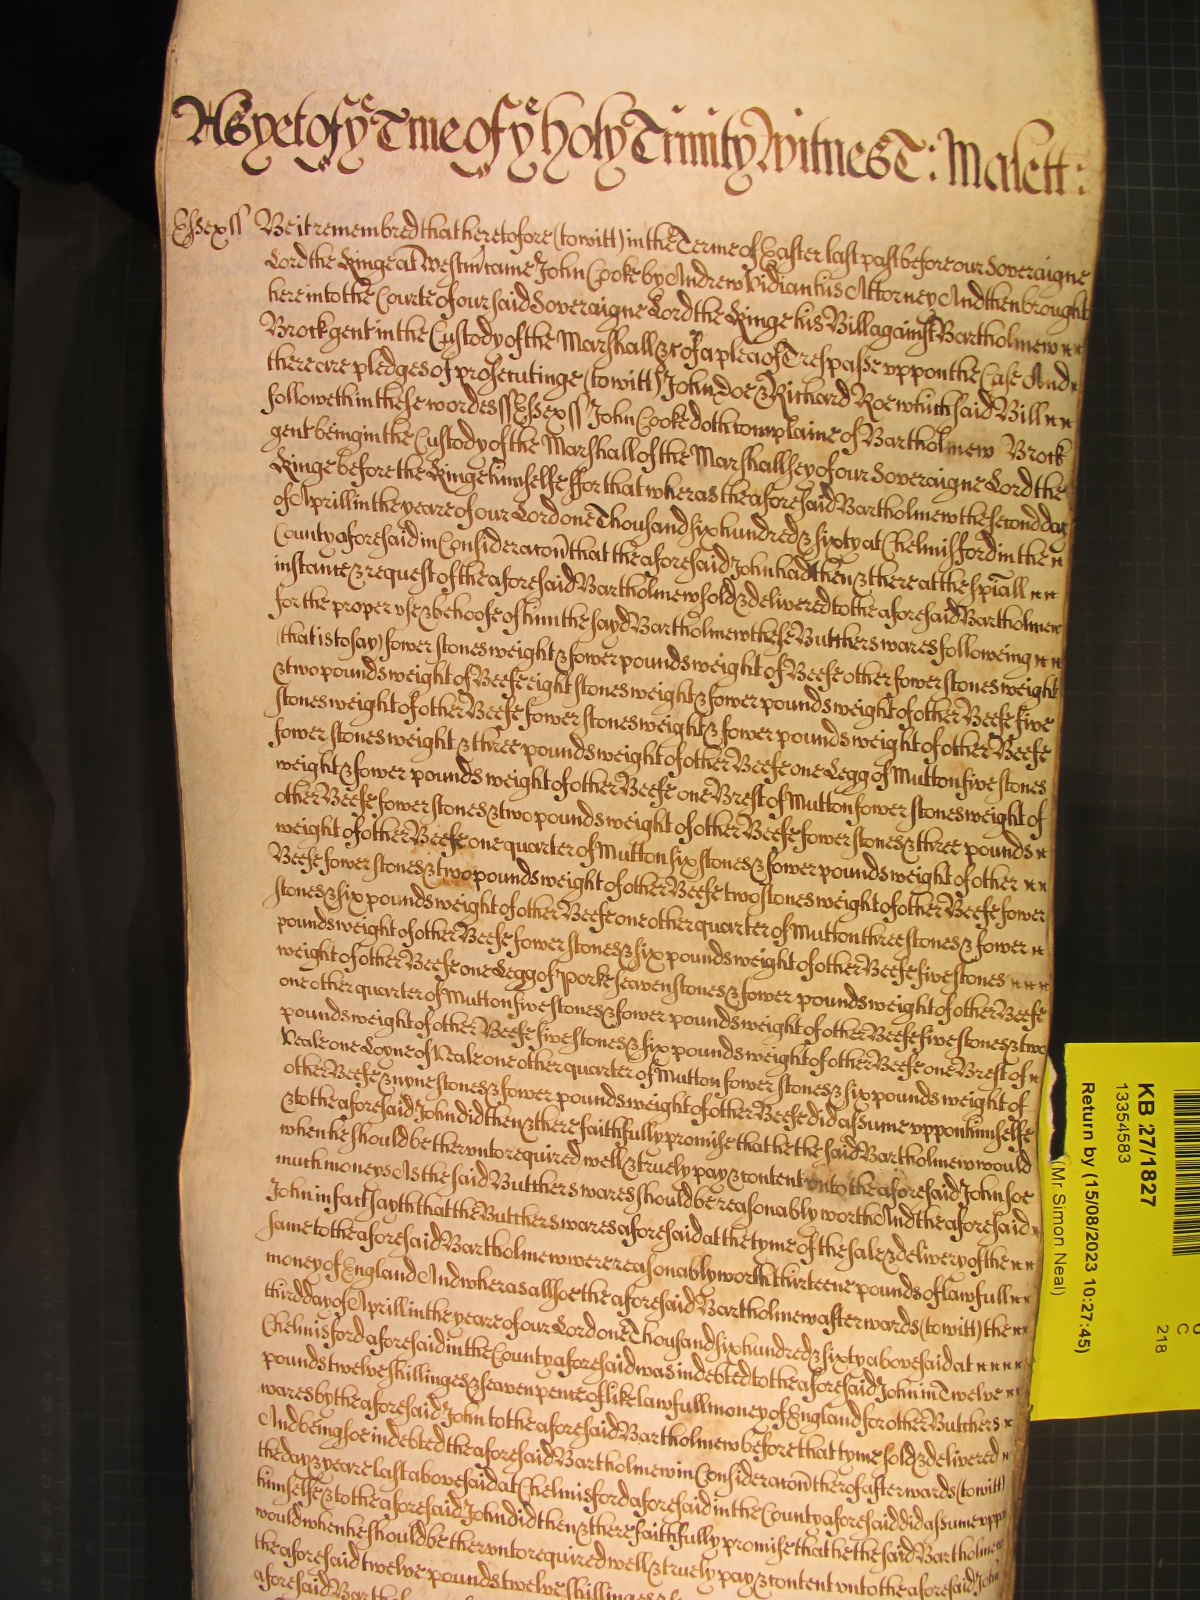 As yet of ye Tme of ye holy Trinity Witnes T: Malett:
Essex ss Be it remembred that heretofore (to witt) in the Terme of Easter last past before our Soveraigne
Lord the Kinge at Westm came John Cooke by Andrew Vidian his Attorney And then brought
here into the Courte of our said Soveraigne Lord the Kinge his Bill against Bartholmew
Brock gent in the Custody of the Marshall &c of a plea of Trespasse uppon the Case And
there are pledges of prosecutinge (to witt) John Doe & Richard Roe which said Bill
followeth in these wordes ss Essex ss John Cooke doth complaine of Bartholmew Brock
gent being in the Custody of the Marshall of the Marshallsey of our Soveraigne Lord the
Kinge before the Kinge himselfe ffor that wheras the aforesaid Bartholmew the second day
of Aprill in the yeare of our Lord one Thousand six hundred & sixty at Chelmisford in the
County aforesaid in Consideracon that the aforesaid John had then & there at the spiall
instance & request of the aforesaid Bartholmew sold & delivered to the aforesaid Bartholmew
for the proper use & behoofe of him the sayd Bartholmew these Butchers wares followeing
(that is to say) fower stones weight & fower pounds weight of Beefe other fower stones weight
& two pounds weight of Beefe eight stones weight & fower pounds weight of other Beefe five
stones weight of other Beefe fower stones weight & fower pounds weight of other Beefe
fower stones weight & three pounds weight of other Beefe one Legg of Mutton five stones
weight & fower pounds weight of other Beefe one Brest of Mutton fower stones weight of
other Beefe fower stones & two pounds weight of other Beefe fower stones & three pounds
weight of other Beefe one quarter of Mutton six stones & fower pounds weight of other
Beefe fower stones & two pounds weight of other Beefe two stones weight of other Beefe fower
stones & six pounds weight of other Beefe one other quarter of Mutton three stones & fower
pounds weight of other Beefe fower stones & six pounds weight of other Beefe five stones
weight of other Beefe one Legg of Porke seaven stones & fower pounds weight of other Beefe
one other quarter of Mutton five stones & fower pounds weight of other Beefe five stones & two
pounds weight of other Beefe five stones & six pounds weight of other Beefe one Brest of
Veale one Loyne of Veale one other quarter of Mutton fower stones & six pounds weight of
other Beefe & nyne stones & fower pounds weight of other Beefe did assume uppon himselfe
& to the aforesaid John did then & there faithfully promise that he the said Bartholmew would
when he should be therunto required well & truely pay & content unto the aforesaid John soe
much moneys As the said Butchers wares should be reasonably worth And the aforesaid
John in fact sayth that the Butchers wares aforesaid at the tyme of the sale & delivery of the
same to the aforesaid Bartholmew were reasonably worth thirteene pounds of lawfull
money of England And wheras allsoe the aforesaid Bartholmew afterwards (to witt) the
third day of Aprill in the yeare of our Lord one Thousand six hundred & sixty abovesaid at
Chelmisford aforesaid in the County aforesaid was indebted to the aforesaid John in Twelve
pounds twelve shillinges & seaven pence of like lawfull money of England for other Butchers
wares by the aforesaid John to the aforesaid Bartholmew before that tyme sold & delivered
And being soe indebted the aforesaid Bartholmew in Consideracon therof afterwards (to witt)
the day & yeare last abovesaid at Chelmisford aforesaid in the County aforesaid did assume uppon
himselfe & to the aforesaid John did then & there faithfully promise that he the said Bartholmew
would when he should be therunto required well & truely pay & content unto the aforesaid John
the aforesaid twelve pounds twelve shillinges &
aforesaid
KB 27/1827
13354583
Return by (15/08/2023 10:27:45)
(Mr Simon Neal)
C
218